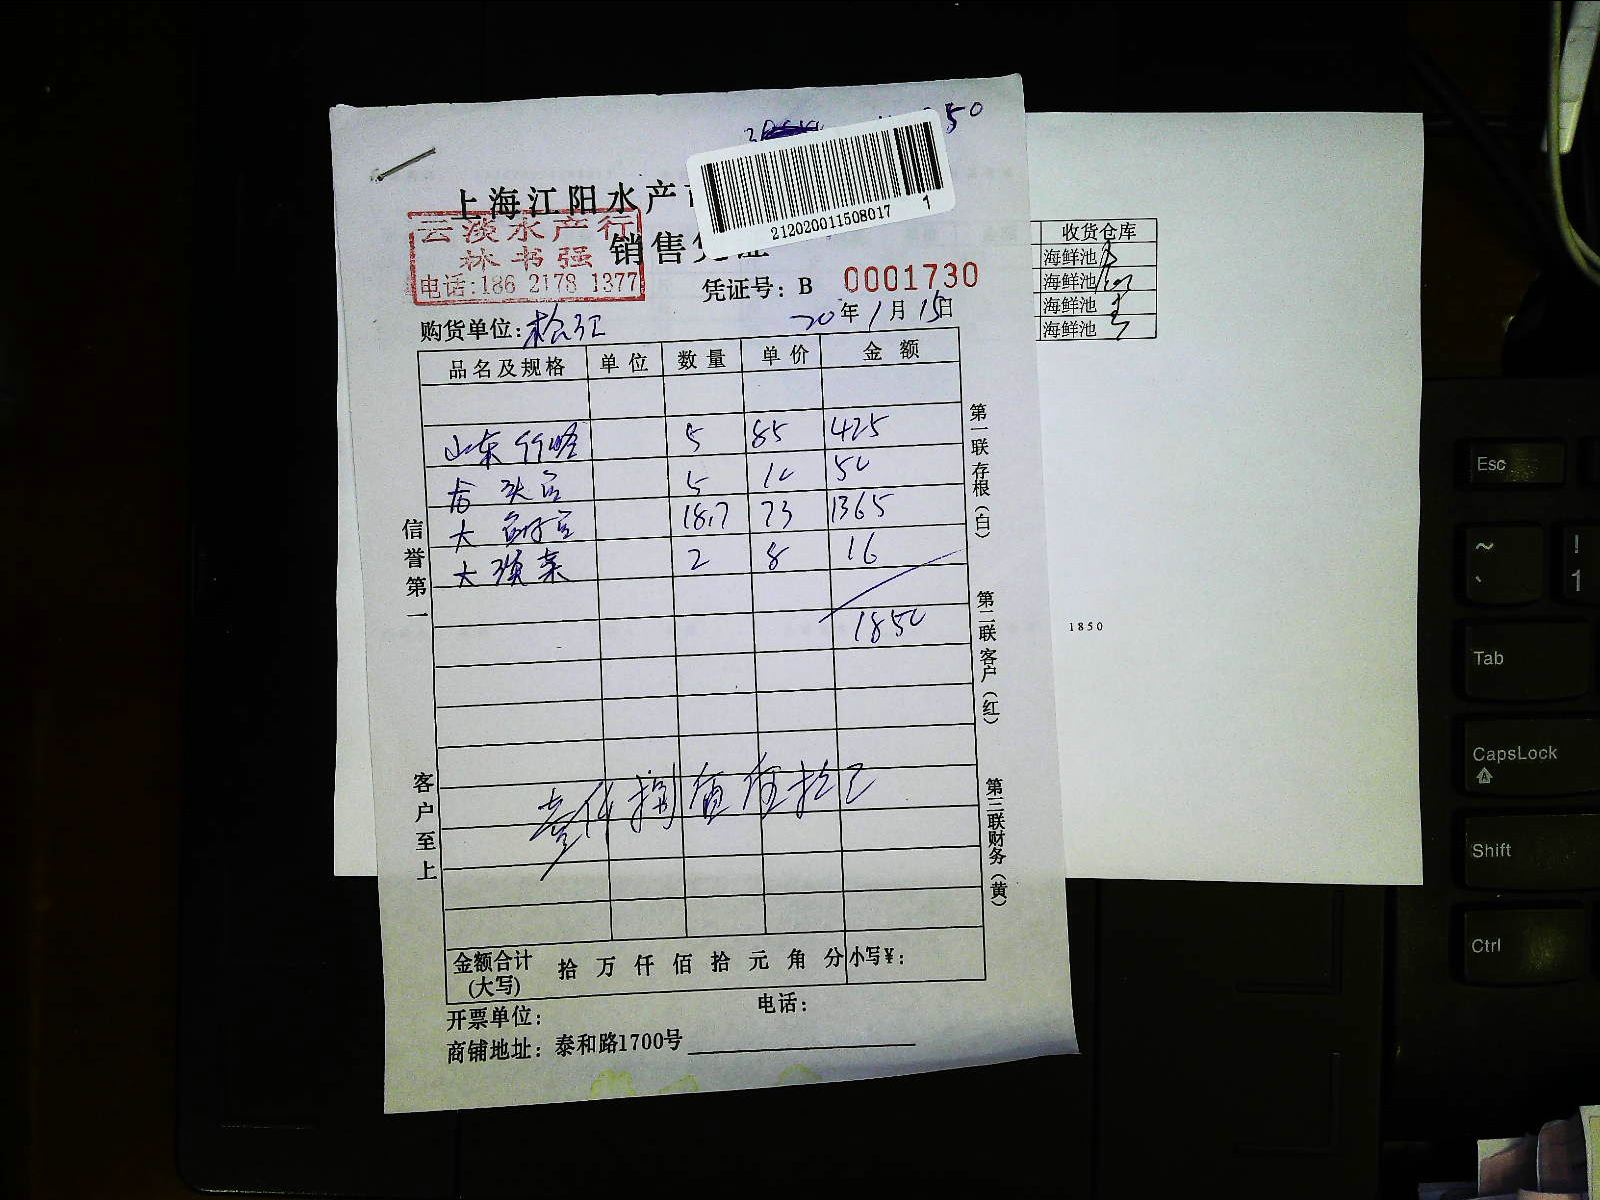 50
上海江阳水产
212020011508017 1
云淡水产行
林书强
电话:186 2178 1377
销售凭证
凭证号: B 0001730
购货单位: 松江 20年1月15日
品名及规格 单位 数量 单价 金额
山东竹蛏 5 85 425
龙头 5 10 50
大 18.7 73 1365
大 菜 2 8 16
1850
壹仟捌佰伍拾元
金额合计(大写) 拾 万 仟 佰 拾 元 角 分 小写¥:
开票单位: 电话:
商铺地址: 泰和路1700号
信誉第一
客户至上
第一联存根(白)
第二联客户(红)
第三联财务(黄)
收货仓库
海鲜池
海鲜池
海鲜池
海鲜池
1850
Esc
~
`
!
1
Tab
CapsLock
Shift
Ctrl